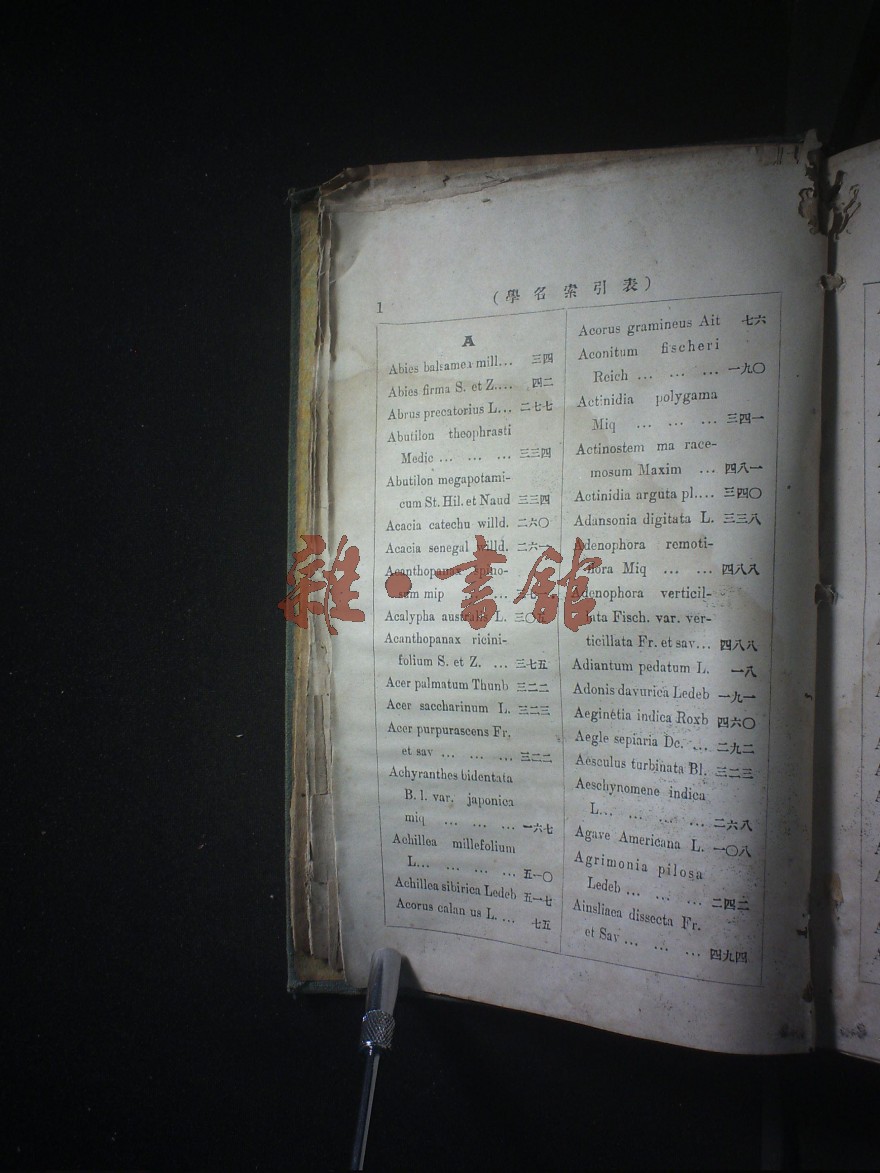 1
(學名索引表)
A
Abies balsamea mill... 三四
Abies firma S. et Z.... 四二
Abrus precatorius L... 二七七
Abutilon theophrasti
Medic ... ... ... 三三四
Abutilon megapotami-
cum St. Hil. et Naud 三三四
Acacia catechu willd. 二六〇
Acacia senegal willd. 二六一
Acanthopanax spino-
sum mip ...
Acalypha australis L. 三〇五
Acanthopanax ricini-
folium S. et Z. ... 三七五
Acer palmatum Thunb 三二二
Acer saccharinum L. 三二三
Acer purpurascens Fr.
et sav ... ... ... 三二二
Achyranthes bidentata
B. l. var. japonica
miq ... ... ... 一六七
Achillea millefolium
L... ... ... ... 五一〇
Achillea sibirica Ledeb 五一七
Acorus calan us L. ... 七五
Acorus gramineus Ait 七六
Aconitum fischeri
Reich ... ... ... 一九〇
Actinidia polygama
Miq ... ... ... 三四一
Actinostem ma race-
mosum Maxim ... 四八一
Actinidia arguta pl.... 三四〇
Adansonia digitata L. 三三八
Adenophora remoti-
flora Miq ... ... 四八八
Adenophora verticil-
lata Fisch. var. ver-
ticillata Fr. et sav... 四八八
Adiantum pedatum L. 一八
Adonis davurica Ledeb 一九一
Aeginetia indica Roxb 四六〇
Aegle sepiaria Dc. ... 二九二
Aesculus turbinata Bl. 三二三
Aeschynomene indica
L... ... ... ... 二六八
Agave Americana L. 一〇八
Agrimonia pilosa
Ledeb ... ... ... 二四二
Ainsliaea dissecta Fr.
et Sav ... ... ... 四九四
雜·書館